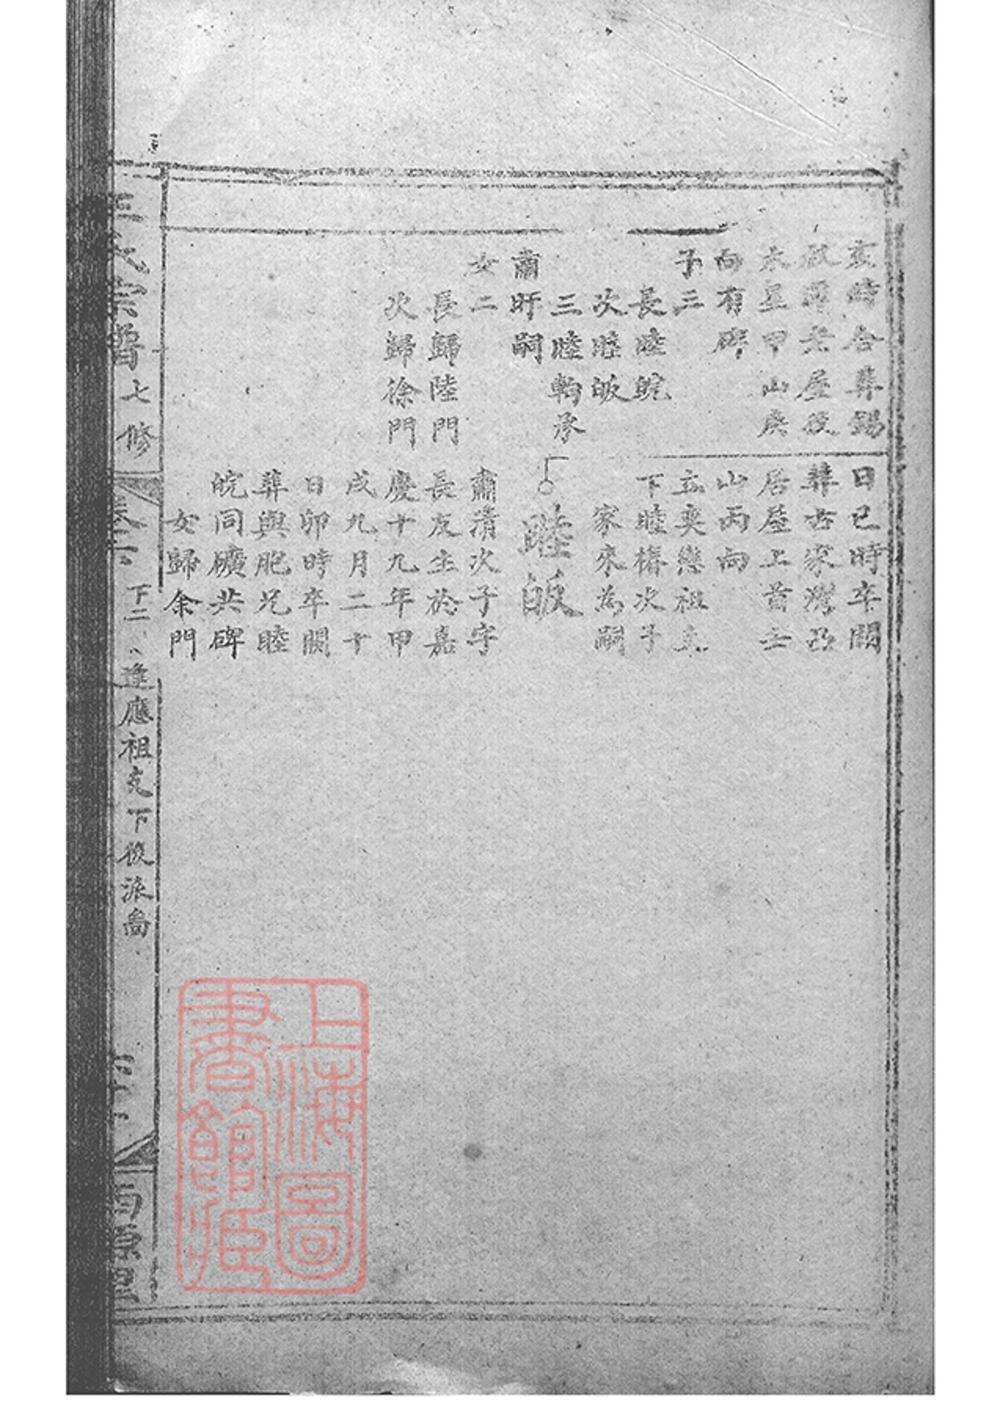 亥時合葬錫
山庚
向有碑
子三
長睦皖
次睦皈
三睦軜承
肅盱嗣
女二
長歸陸門
次歸徐門
日巳時卒關
葬古家灣
居屋上首
山丙向
立奕懋祖支
下睦樁次子
家來為嗣
睦皈
肅清次子字
長友生於嘉
慶十九年甲
戌九月二十
日卯時卒關
葬與胞兄睦
皖同礦共碑
女歸余門
王氏宗譜 七修
卷六 下二
逢應祖支下後派啚
上海圖
書館藏